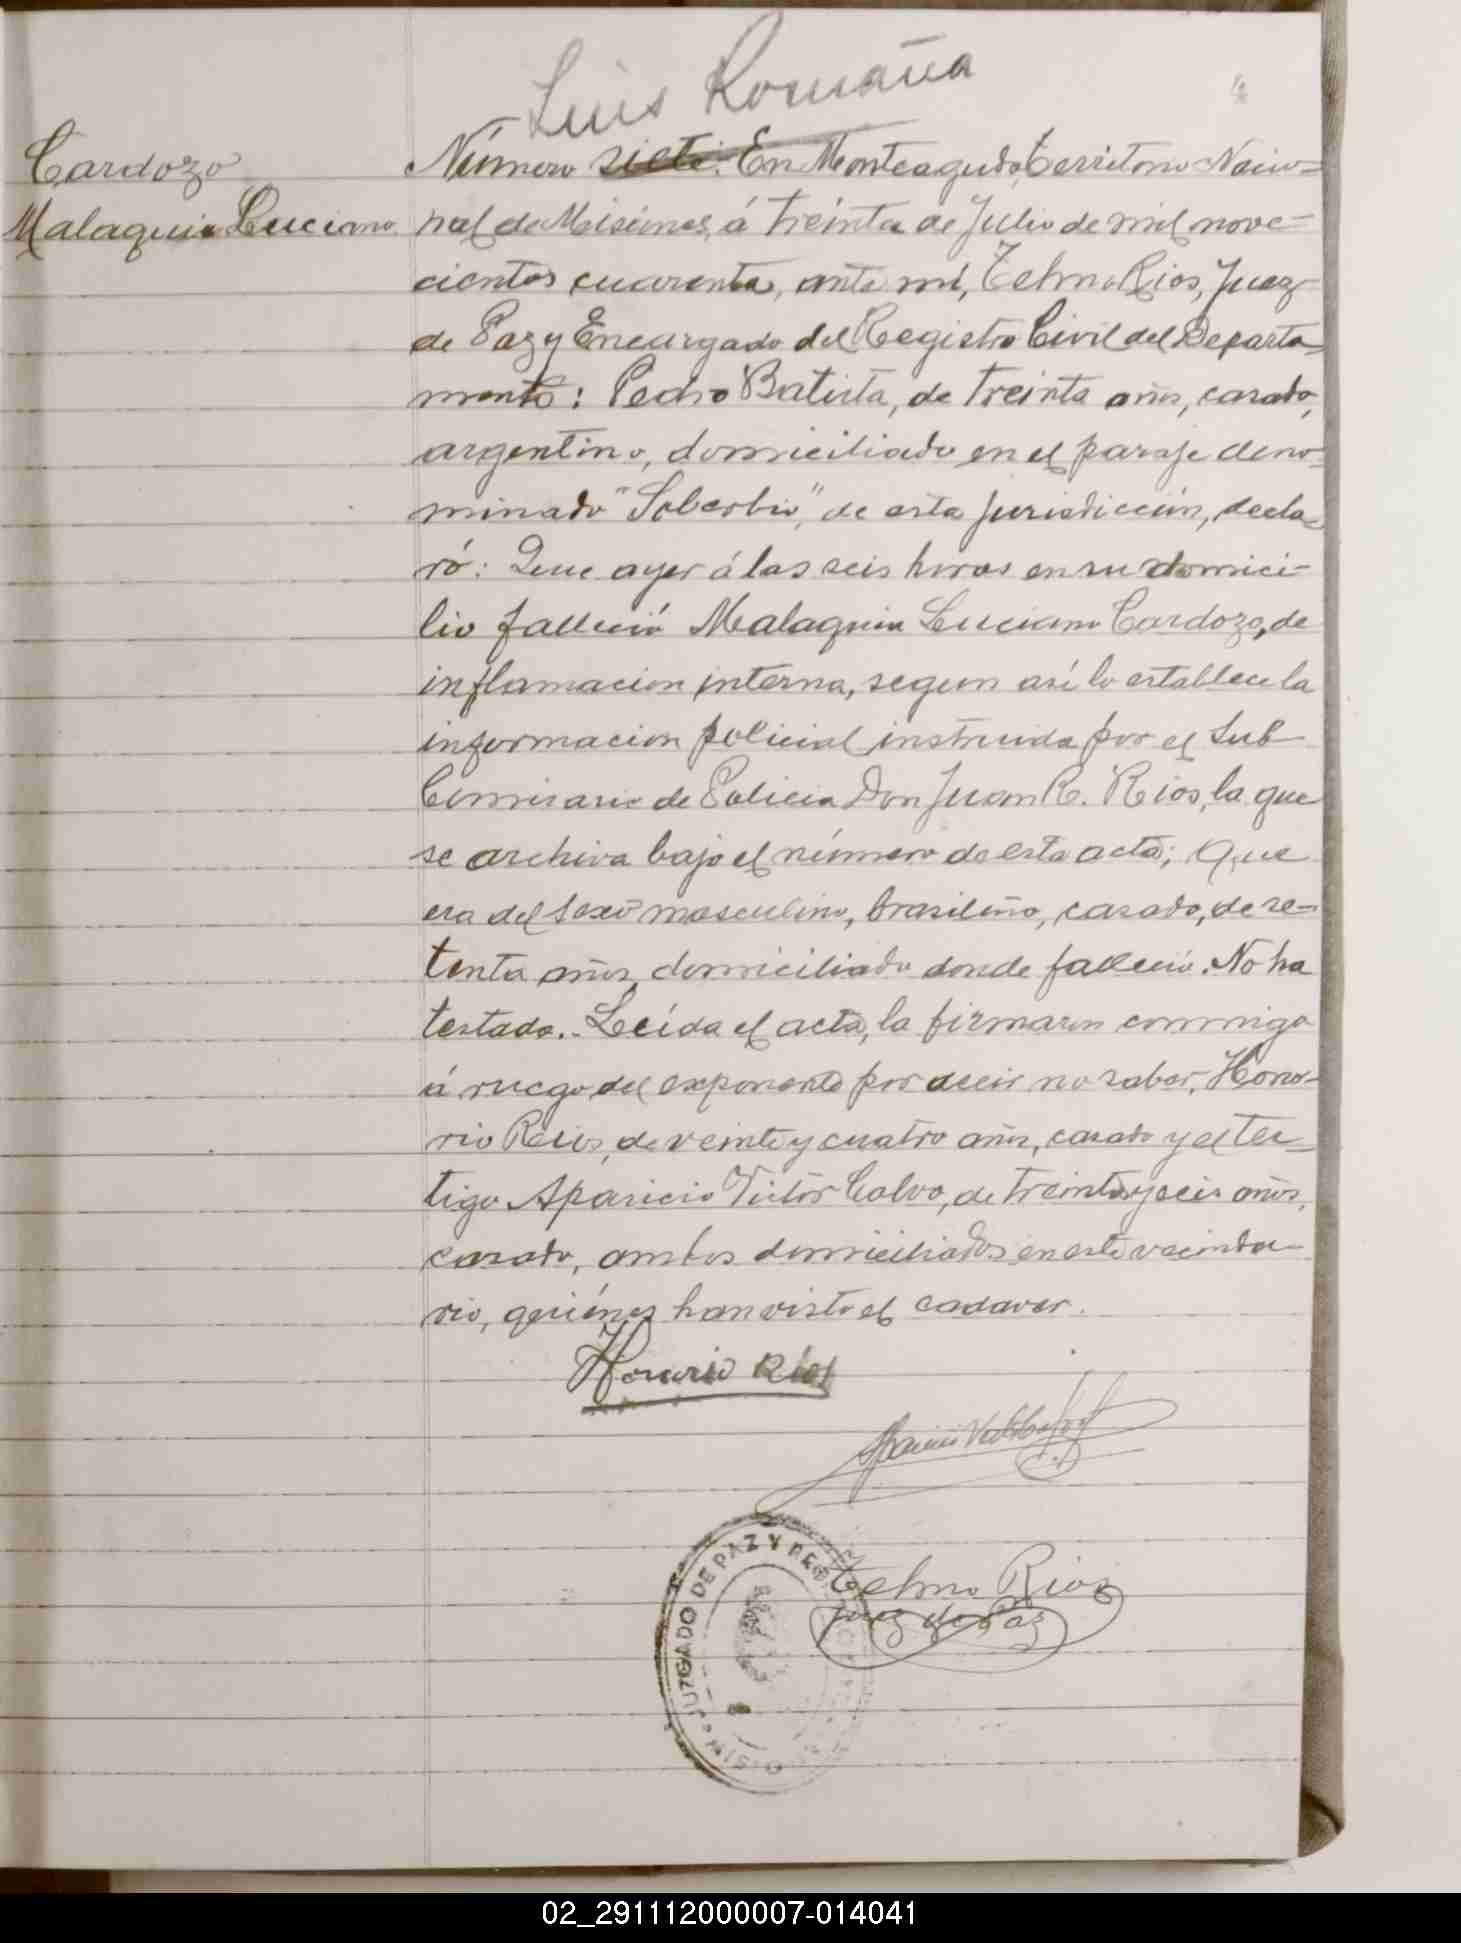 Luis Romaña
4
Cardozo
Malaquia Luciano
Número siete. En Monteagudo, Territorio Nacio-
nal de Misiones, á treinta de Julio de mil nove-
cientos cuarenta, ante mí, Telmo Rios, Juez
de Paz y Encargado del Registro Civil del Departa-
mento: Pedro Batista, de treinta años, casado,
argentino, domiciliado en el paraje deno-
minado "Soberbio", de esta jurisdicción, decla-
ró: Que ayer á las seis horas en su domici-
lio falleció Malaquia Luciano Cardozo, de
inflamacion interna, segun así lo establece la
informacion policial instruida por el Sub
Comisario de Policia Don Juan R. Rios, la que
se archiva bajo el número de esta acta; Que
era del sexo masculino, brasileño, casado, de se-
tenta años, domiciliado donde falleció. No ha
testado. Leída el acta, la firmaron conmigo
á ruego del exponente por decir no saber, Hono-
rio Rios, de veinte y cuatro años, casado y el tes-
tigo Aparicio Victor Calvo, de treinta y seis años,
casado, ambos domiciliados en este vecinda-
rio, quiénes han visto el cadaver.
Honorio Rios
Aparicio Victor Calvo
Telmo Rios
Juez de Paz
JUZGADO DE PAZ Y REG
02_291112000007-014041